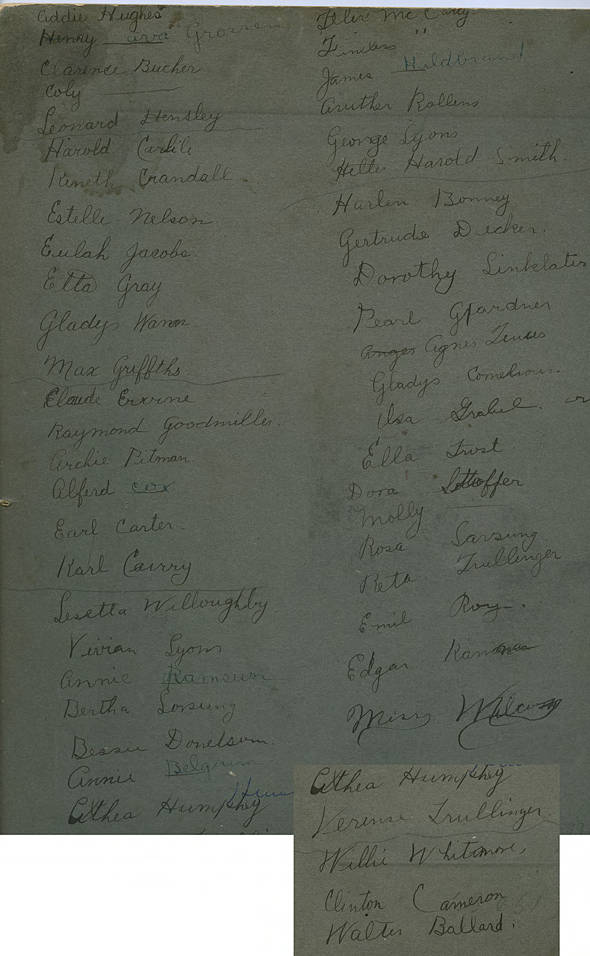 Addie Hughes
Henry Grosser
Clarence Bucher
Coly
Leonard Hensley
Harold Carlile
Kineth Crandall
Estelle Nelson
Eulah Jacobs
Etta Gray
Gladys Wann
Max Griffths
Claude Erxine
Raymond Goodmiller
Archie Pitman
Alferd Cox
Earl Carter
Karl Cairry
Lesetta Willoughby
Vivian Lyons
Annie Ramseur
Bertha Lorsung
Bessie Donelson
Annie Belgium
Althea Humphey
Mc Carey
"
James Hildbrand
Aruther Rollens
George Lyons
Harold Smith
Harlen Bonney
Gertrude Decker
Dorothy Linklater
Pearl Gardner
Agnes
Gladys
Ilsa
Ella Trost
Dora
Molly
Rosa Sarsung
Reta Trullinger
Emil Roy
Edgar
Miss Wilcox
Althea Humphey
Verense Trullinger
Willie Whitmore,
Clinton Cameron
Walter Ballard.